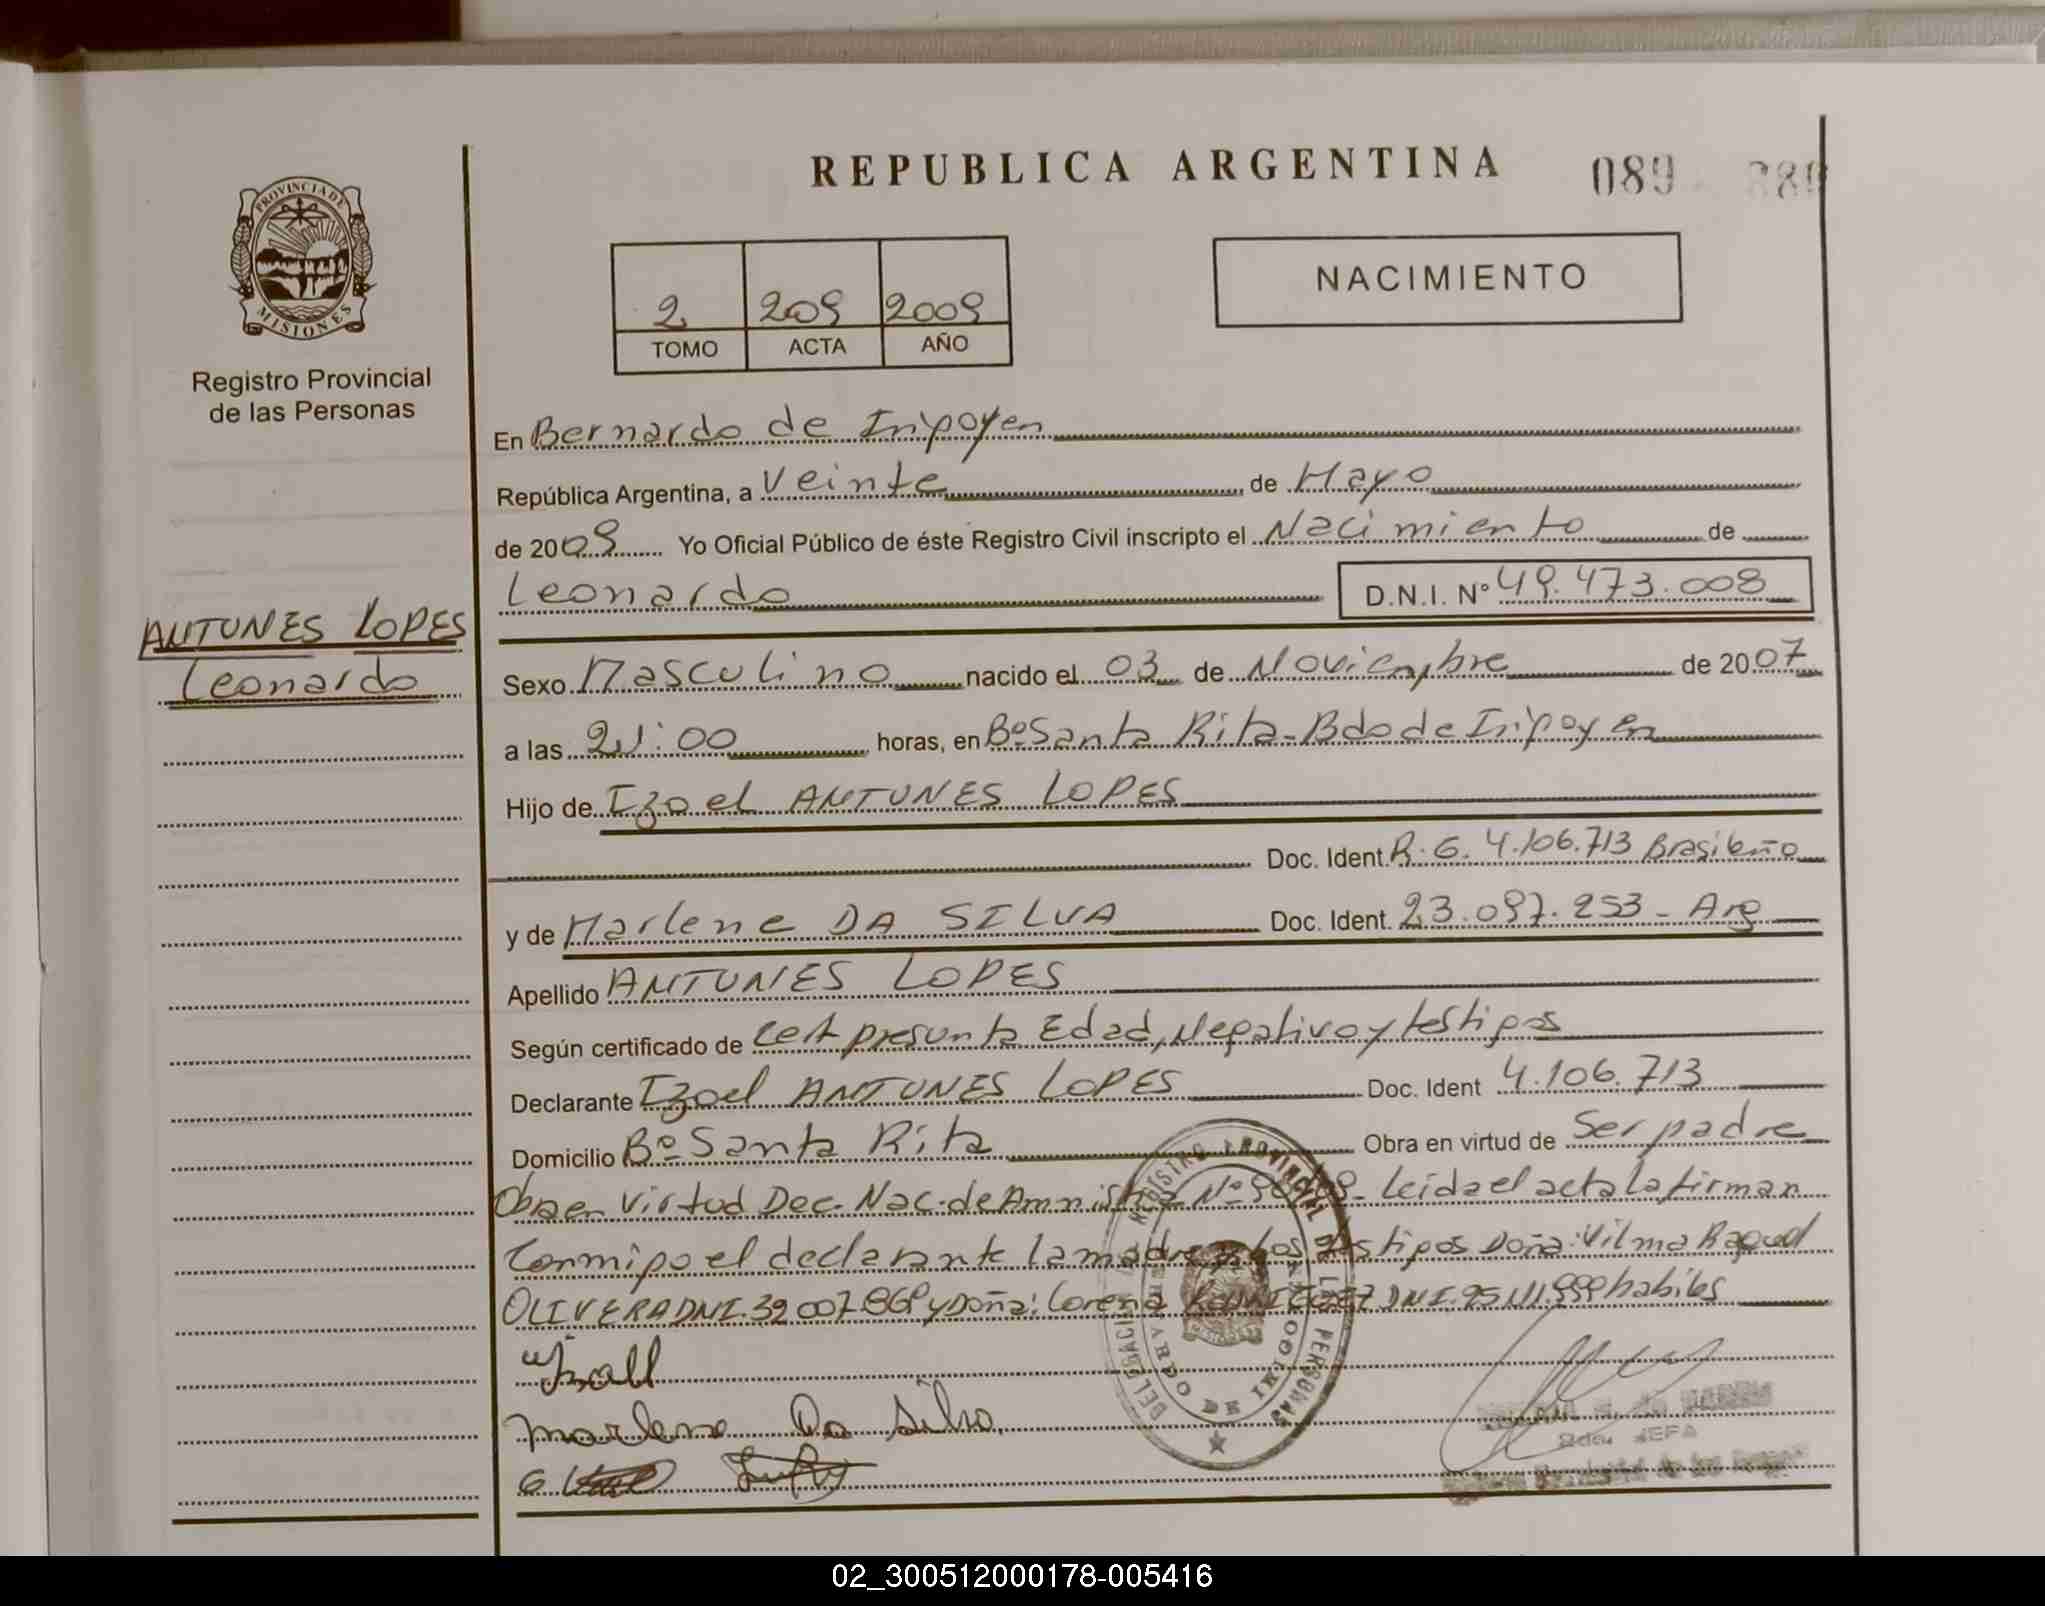 REPUBLICA ARGENTINA 089
PROVINCIA DE MISIONES
Registro Provincial
de las Personas
2 209 2009
TOMO ACTA AÑO
NACIMIENTO
En Bernardo de Iripoyen
República Argentina, a Veinte de Mayo
de 2009 Yo Oficial Público de éste Registro Civil inscripto el Nacimiento de
Leonardo D.N.I. Nº 49.473.008
ANTUNES LOPES
Leonardo
Sexo Masculino nacido el 03 de Noviembre de 2007
a las 21:00 horas, en Bº Santa Rita - Bdo de Iripoyen
Hijo de Izoel ANTUNES LOPES
Doc. Ident. R.G. 4.106.713 Brasileño
y de Marlene DA SILVA Doc. Ident. 23.097.253 - Arg
Apellido ANTUNES LOPES
Según certificado de Cert presunta Edad, Negativo y testigos
Declarante Izoel ANTUNES LOPES Doc. Ident 4.106.713
Domicilio Bº Santa Rita Obra en virtud de Ser padre
Obra en Virtud Dec. Nac. de Amnistia Nº Leida el acta la firman
Conmigo el declarante la madre y los testigos Doña: Vilma Raquel
OLIVERA DNI. 32.007.869 y Doña: Lorena DNI. habiles
Marlene Da Silva
REGISTRO PROVINCIAL DE LAS PERSONAS
DELEGACION
DE IRIGOYEN
JEFA
02_300512000178-005416